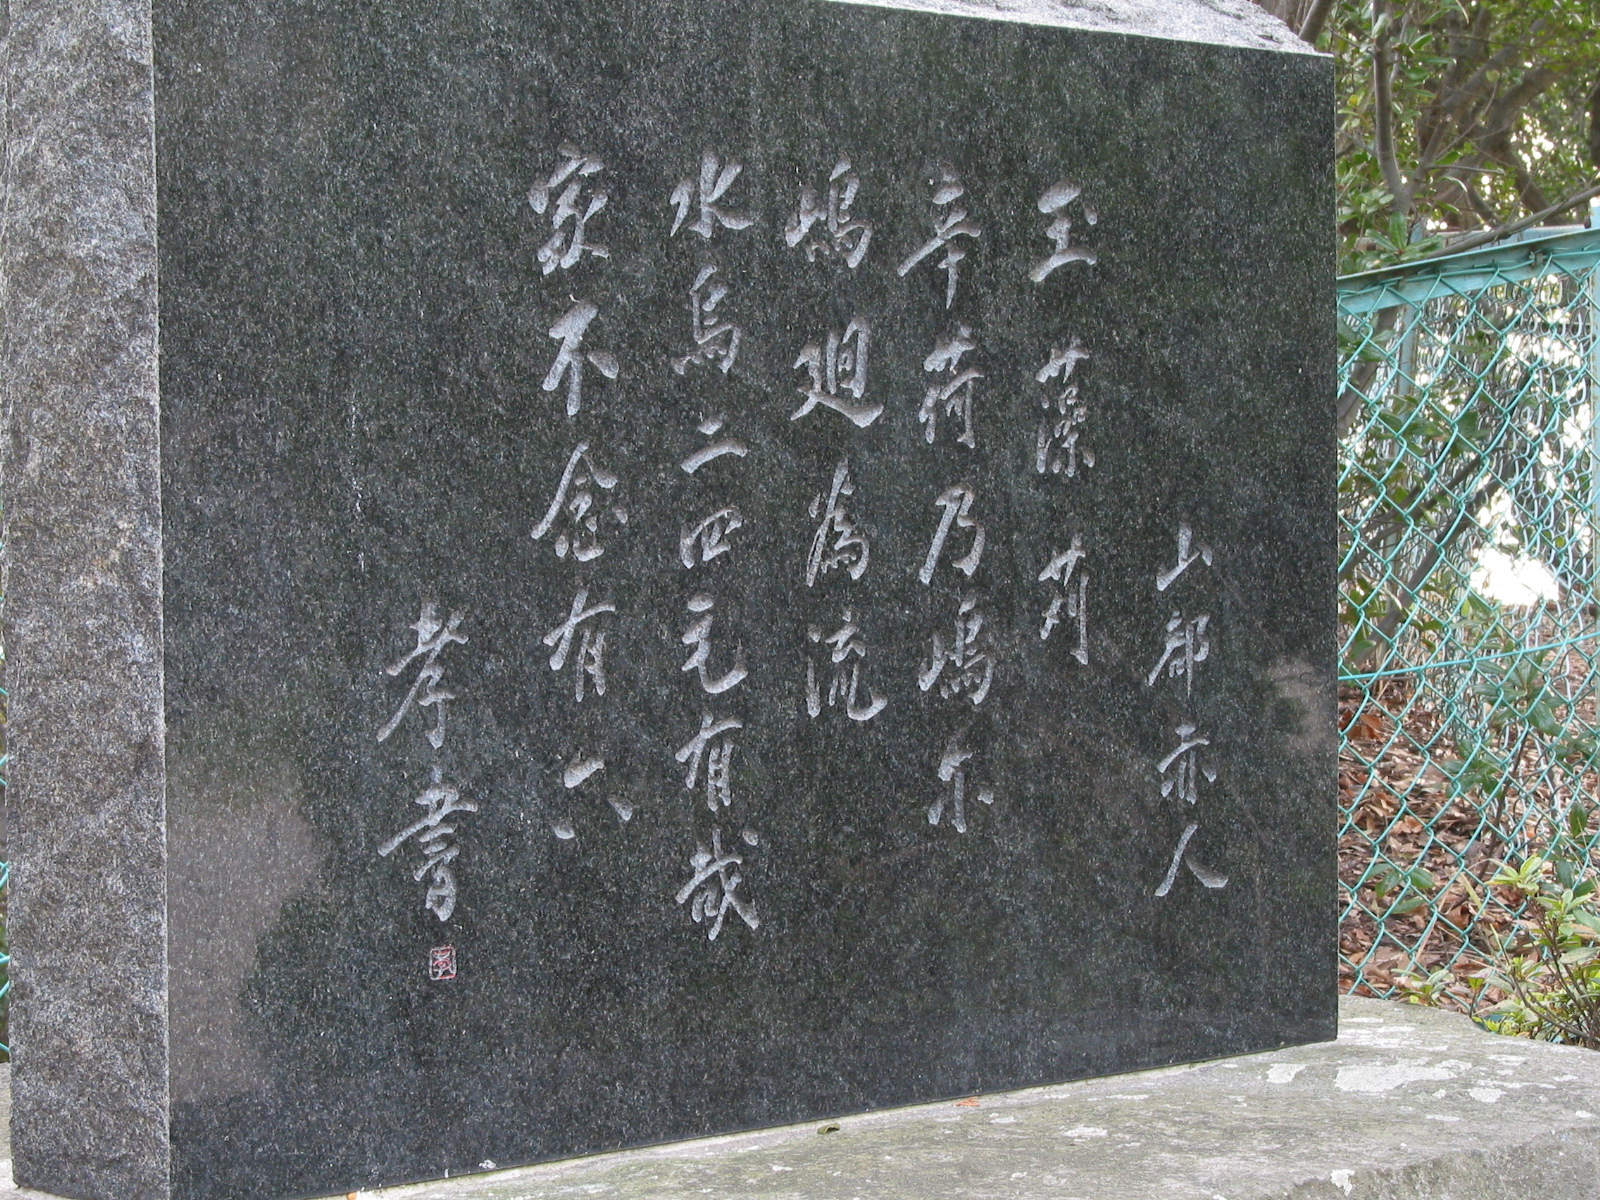 山部赤人
玉藻苅
辛荷乃嶋尓
嶋廻為流
水烏二四毛有哉
家不念有六
孝書